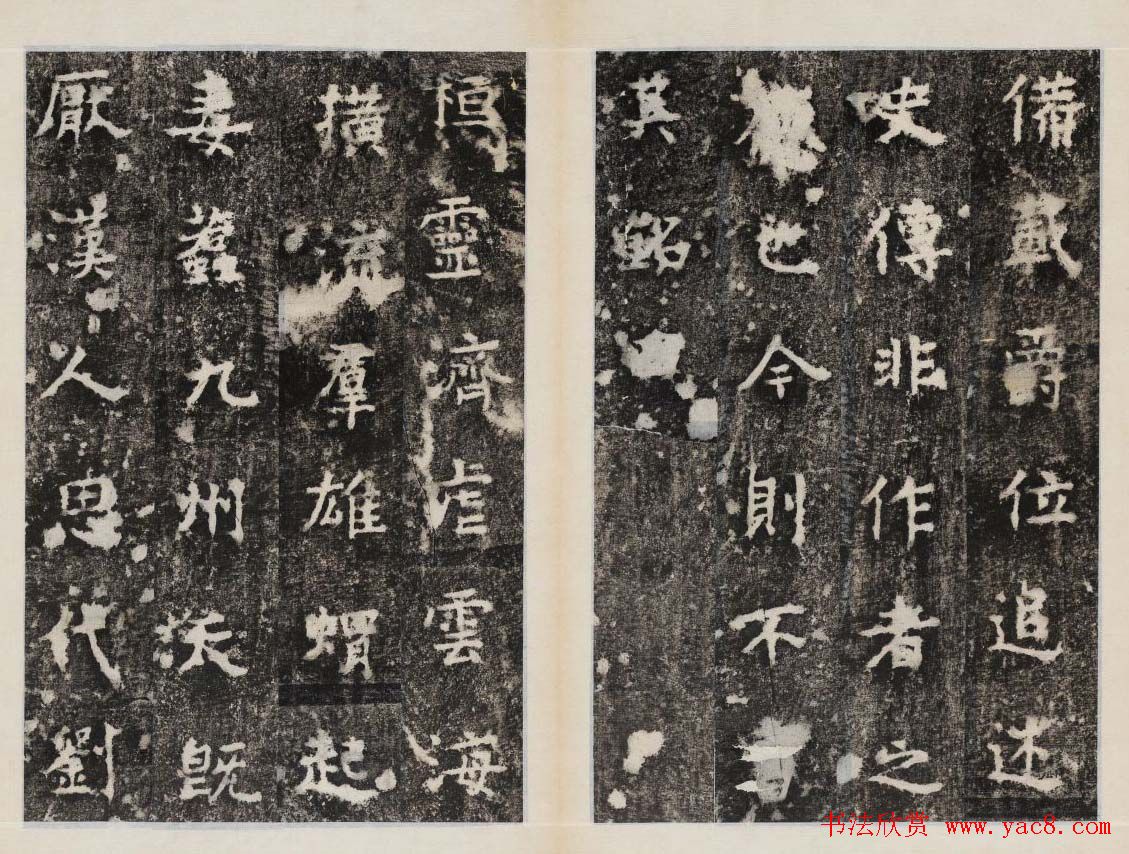 備載爵位追述
史傳非作者之
也今則不
其銘
桓靈濟虐雲海
撗流羣雄蝟起
毒蠚九州天既
厭漢人思代劉
书法欣赏 www.yac8.com